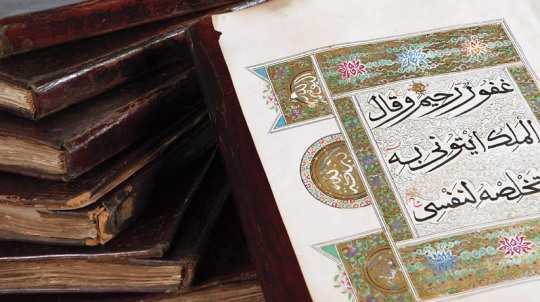 غفور رحيم وقال
الملك ايتونى به
ستخلصه لنفسى